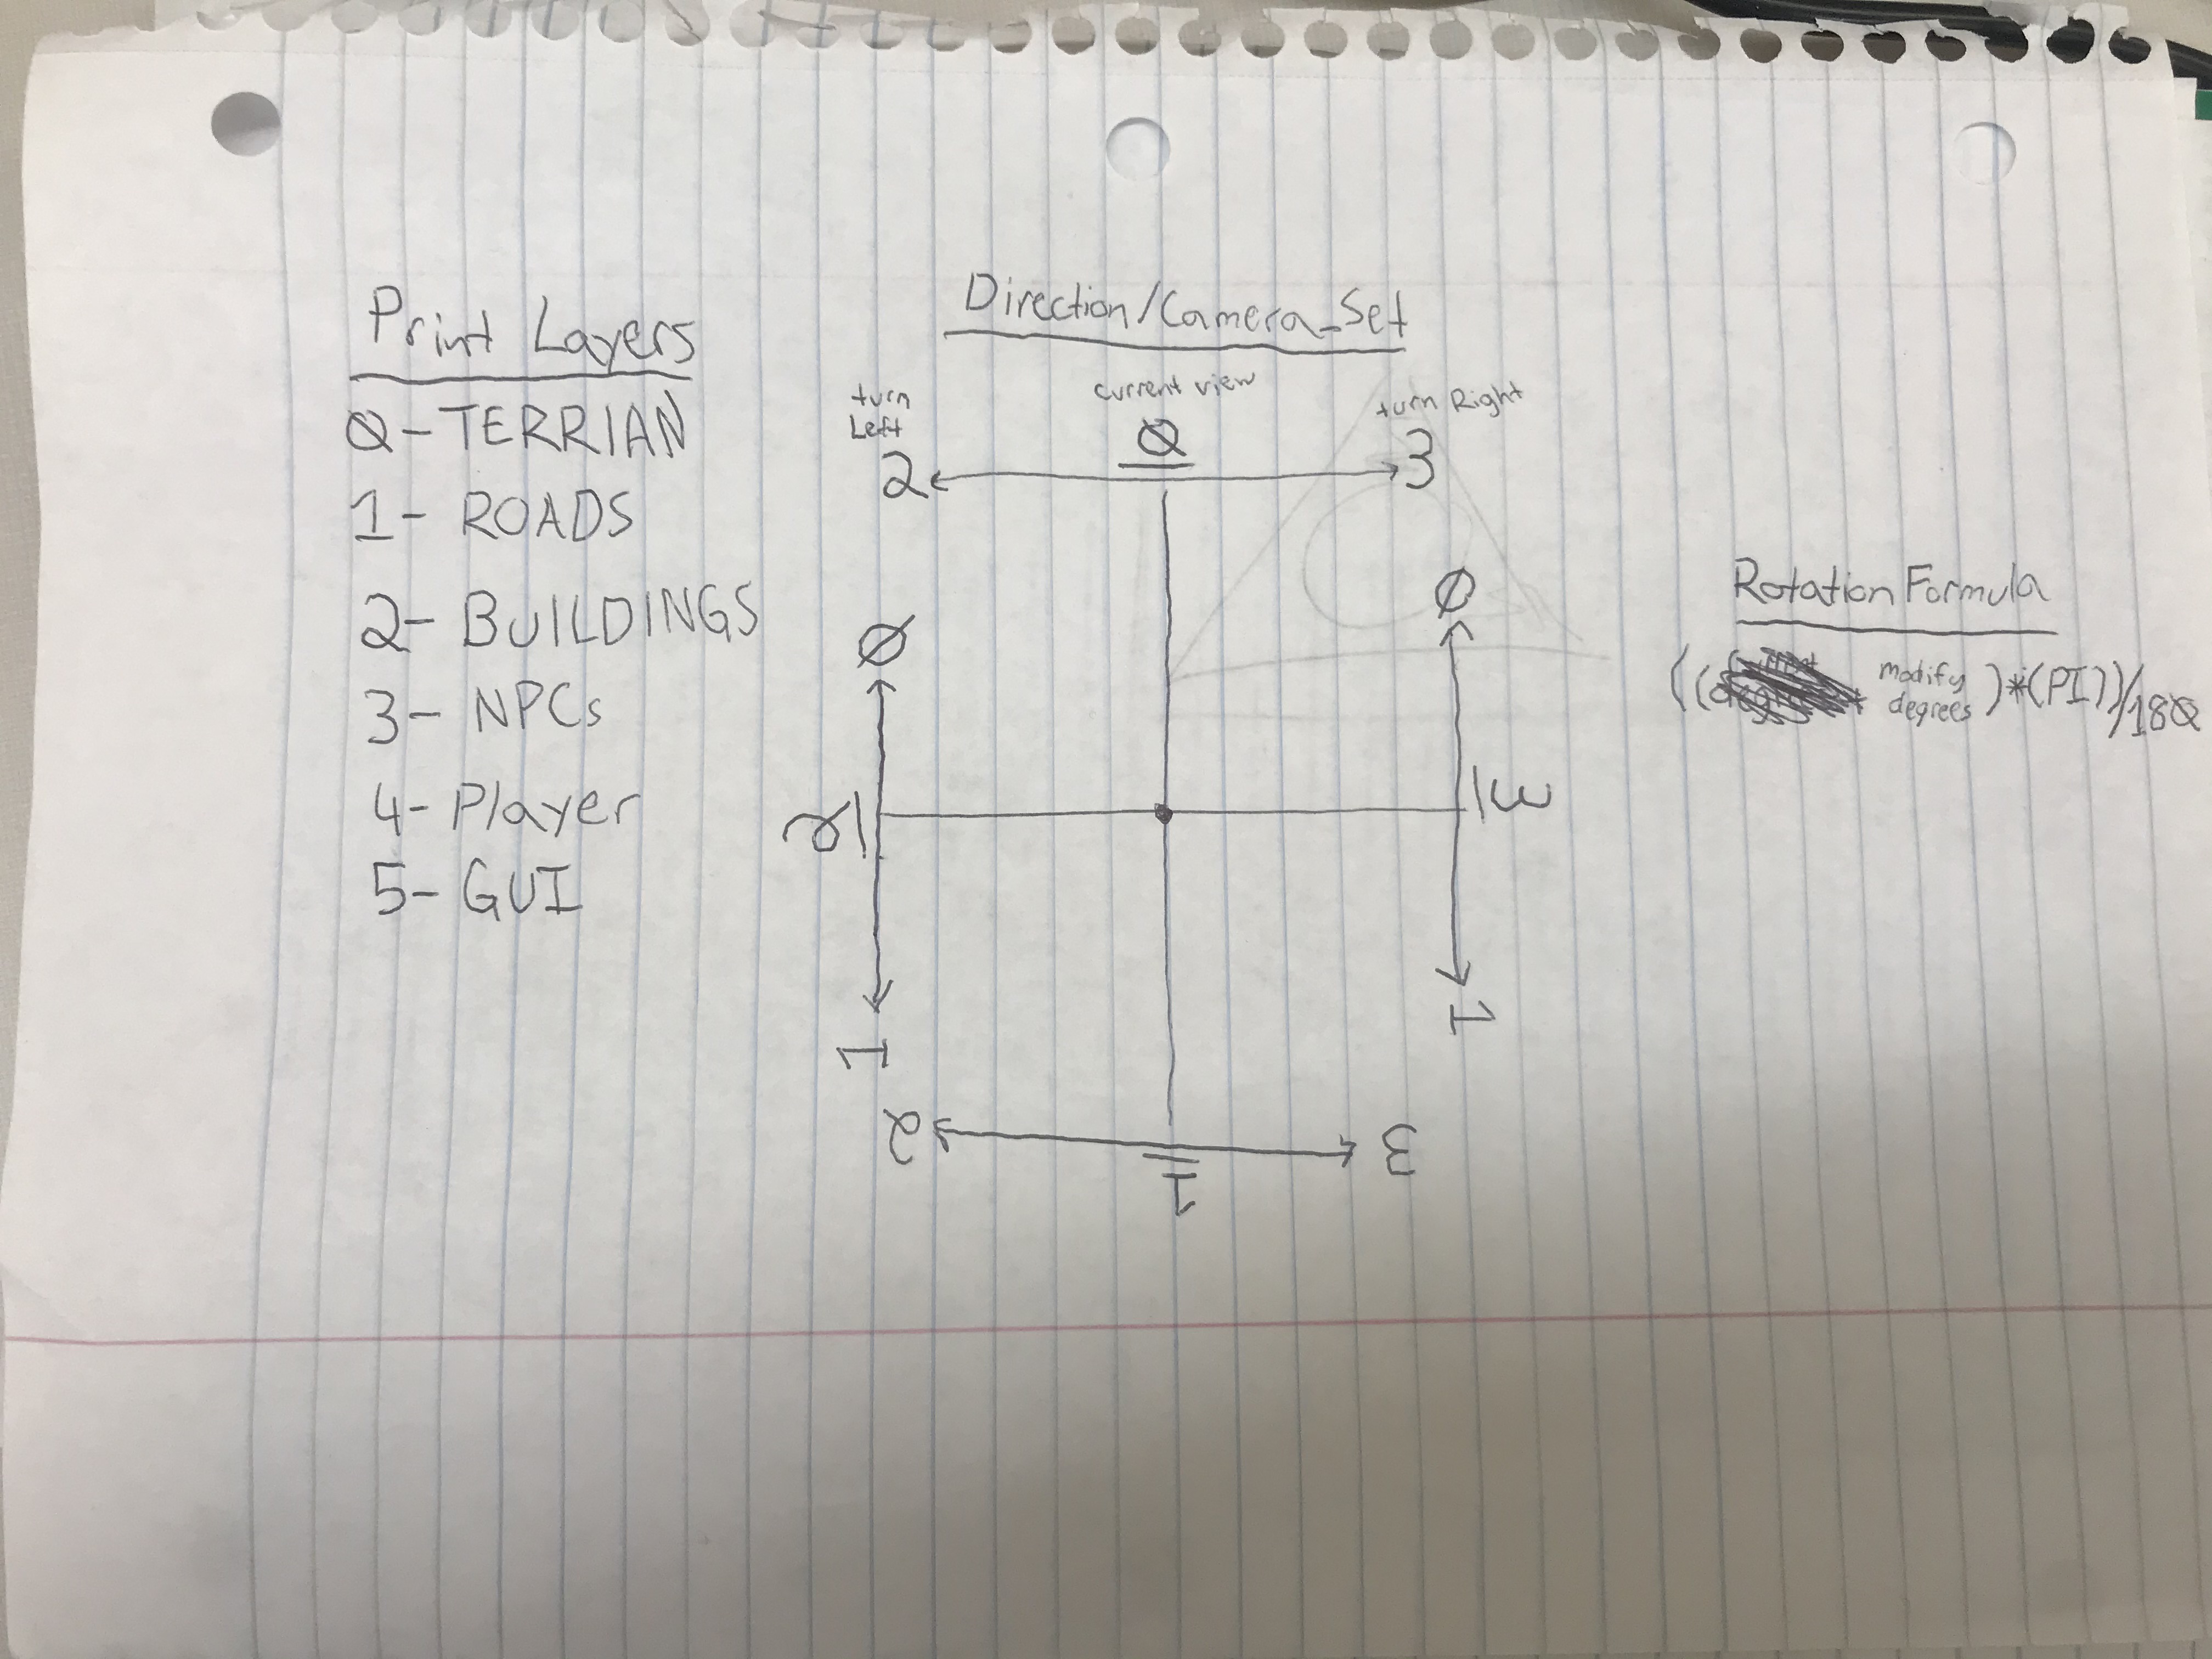 Print Layers
Ø-TERRIAN
1- ROADS
2- BUILDINGS
3- NPCs
4- Player
5- GUI
Direction/Camera_Set
turn
Left
current view
turn Right
2
Ø
3
Ø
Ø
2
3
1
1
2
1
3
Rotation Formula
((
modify
degrees
)*(PI))/18Ø